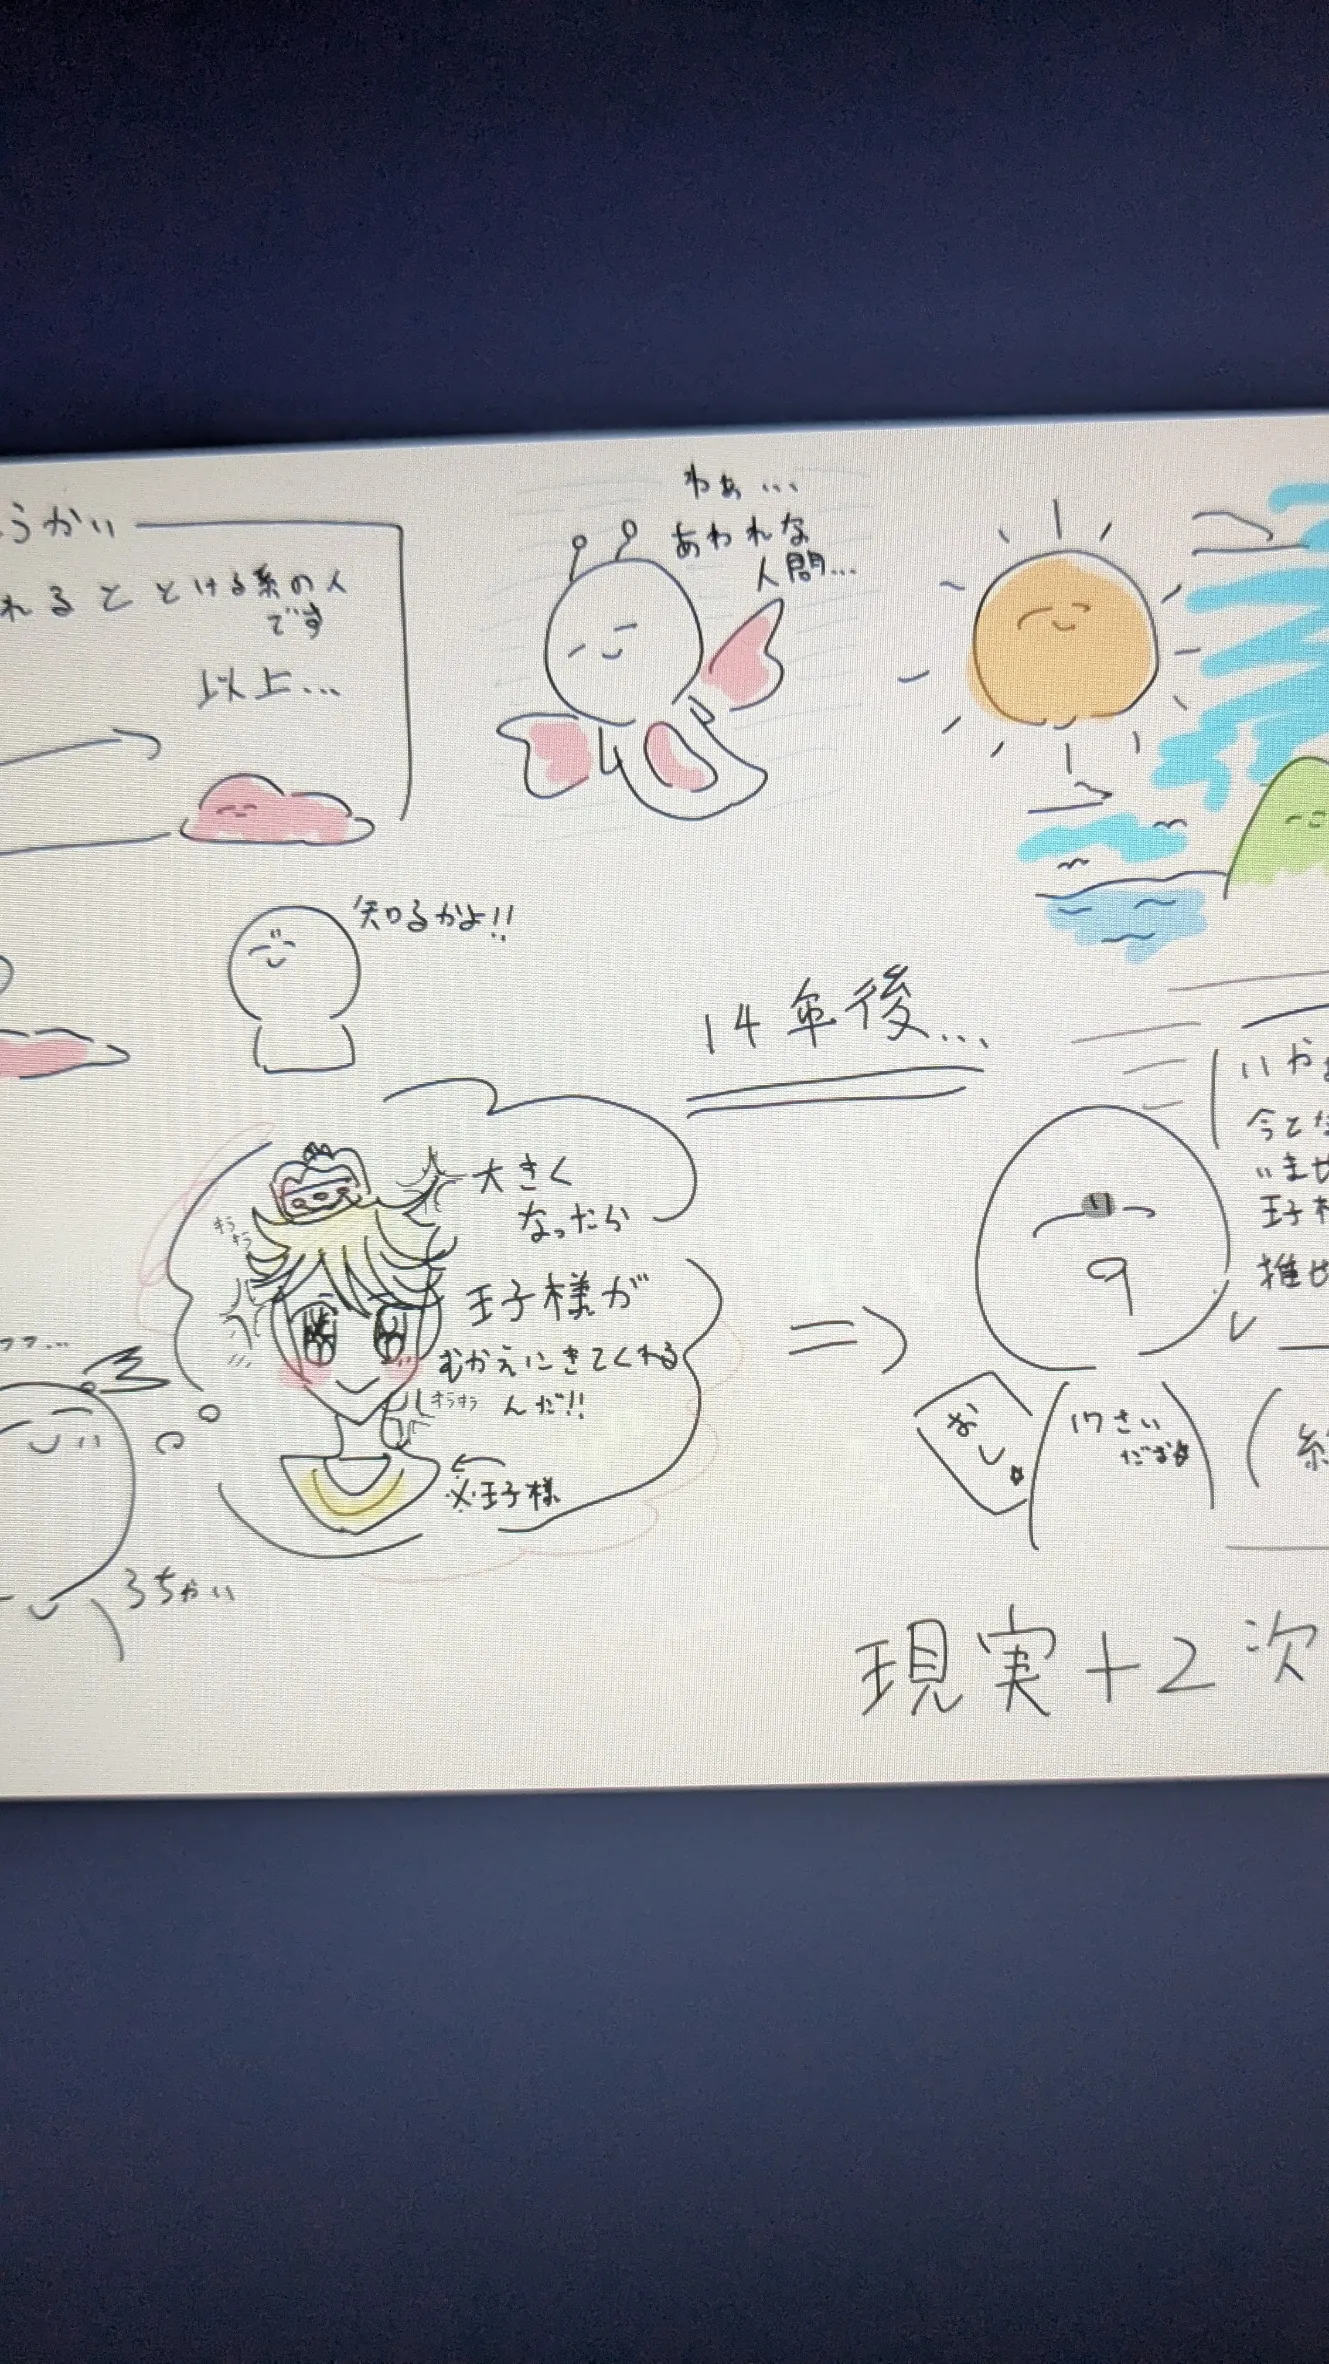 うかい
れるととける系の人
です
以上...
わぁ...
あわれな
人間...
知るかよ!!
14年後...
大きく
なったら
王子様が
むかえにきてくれる
んだ!!
キラキラ
キラキラ
※王子様
3ちゃい
おし
17さい
だお☆
いやぁ
今とな
いませ
王子様
推せ
現実+2次